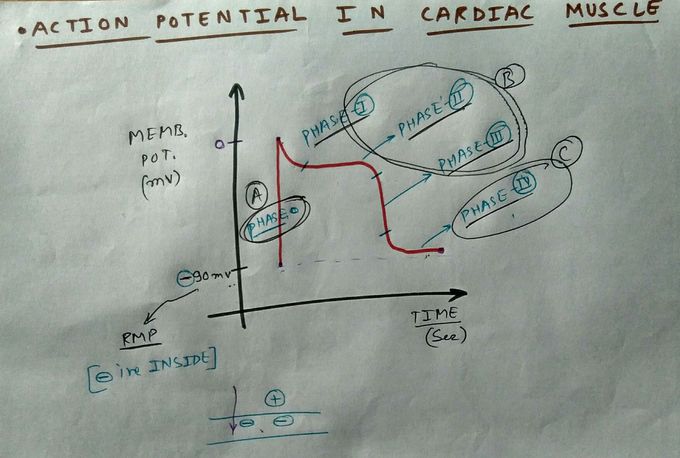 • ACTION POTENTIAL IN CARDIAC MUSCLE
B
PHASE-I
PHASE-II
MEMB.
POT.
(mV)
0
PHASE-III
C
A
PHASE 0
PHASE-IV
-90mv
RMP
[⊖ive INSIDE]
TIME
(Sec)
+
- -